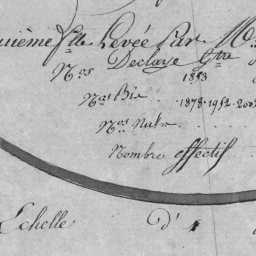 uième f.lle Levée Par M
N.os Declaye
1853
N.os Bis . . 1878. 1952. 200
N.os Nuls . . .
Nombre effectif
Echelle D' 1